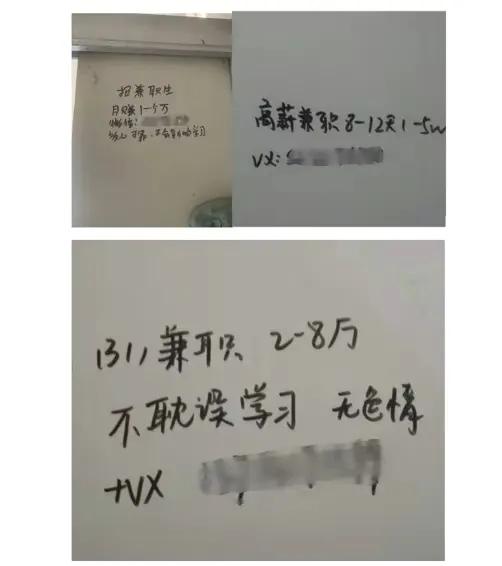 招兼职生
月赚1一个万
微信：
可靠，不会影响学习
高薪兼职 8-12天 1-5w
VX:
兼职 2-8万
不耽误学习 无色情
+VX